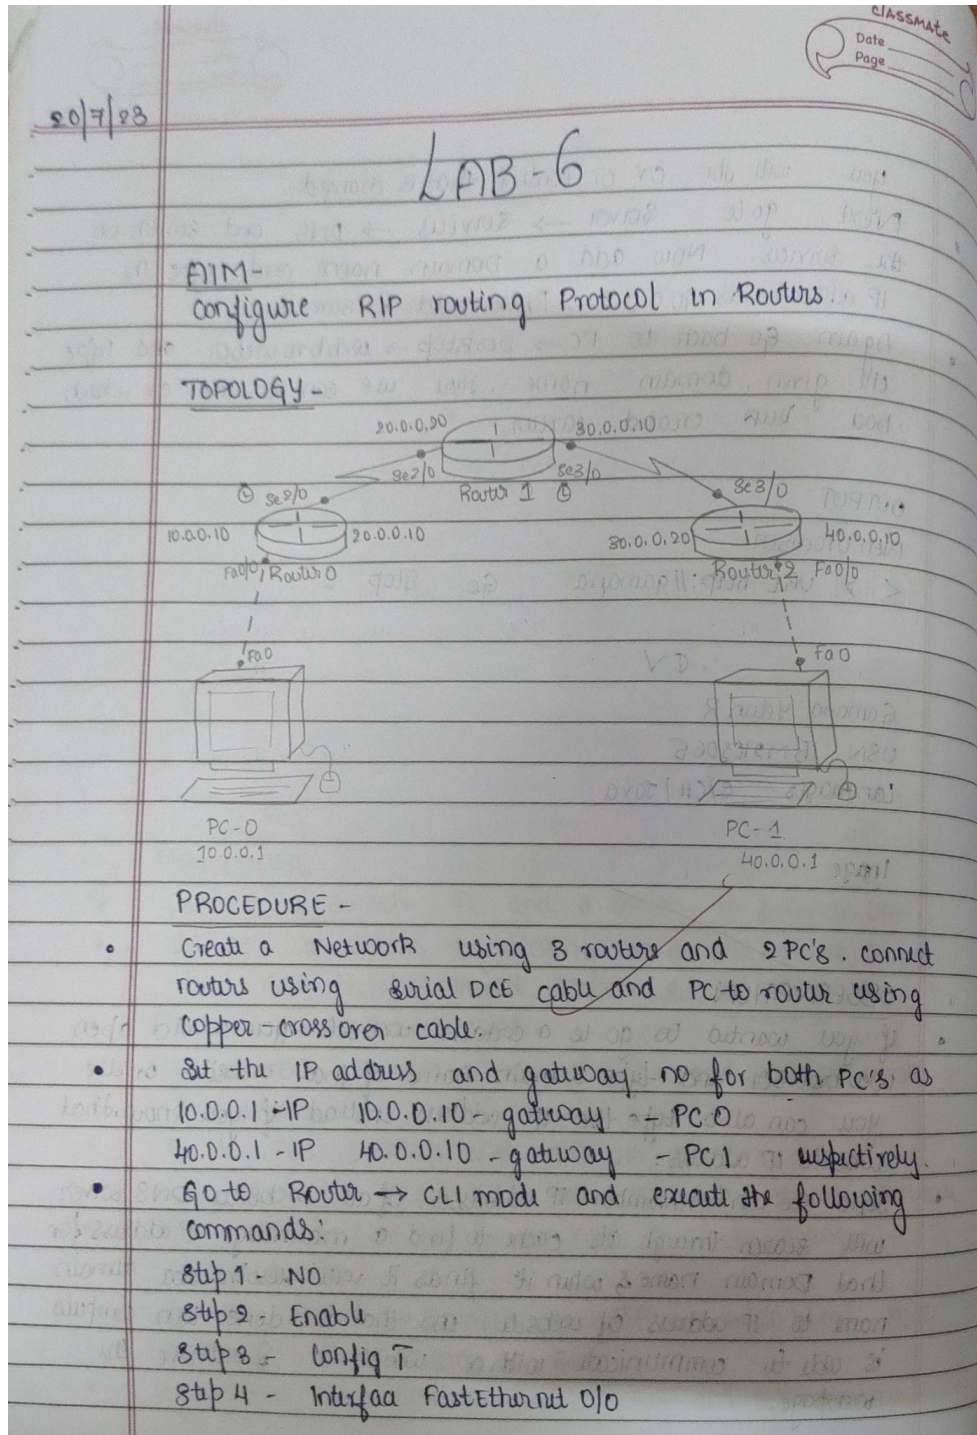 classmate
Date
Page
20/7/23
LAB-6
AIM-
configure RIP routing Protocol in Routers.
TOPOLOGY-
20.0.0.20 30.0.0.10
Se2/0 Router 1 Se3/0
Se2/0 Se3/0
10.0.0.10 20.0.0.10 30.0.0.20 40.0.0.10
Fa0/0 Router 0 Router 2 Fa0/0
Fa0 Fa0
PC-0 PC-1
10.0.0.1 40.0.0.1
PROCEDURE-
• Create a Network using 3 routers and 2 PC's. connect
routers using serial DCE cable and PC to router using
copper-crossover cable.
• Set the IP address and gateway no for both PC's as
10.0.0.1 - IP 10.0.0.10 - gateway - PC0
40.0.0.1 - IP 40.0.0.10 - gateway - PC1 respectively.
• Go to Router → CLI mode and execute the following
commands:
Step 1 - NO
Step 2 - Enable
Step 3 - Config T
Step 4 - Interface FastEthernet 0/0